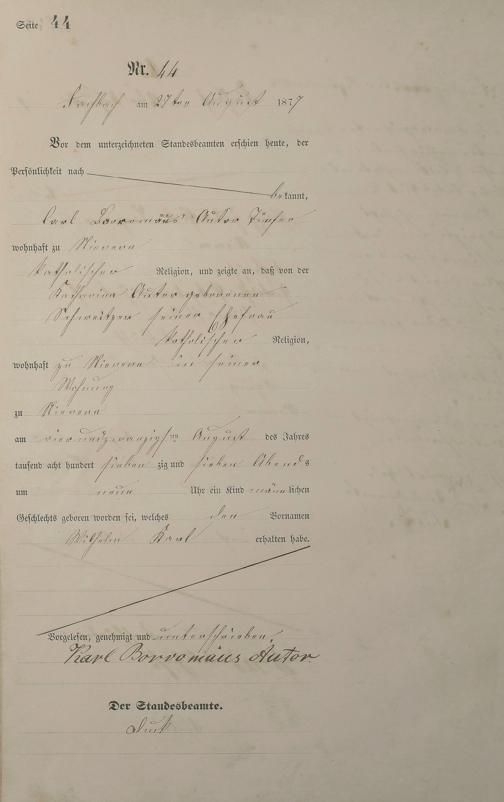 Seite 44
Nr. 44
am 27ten August 1877
Vor dem unterzeichneten Standesbeamten erschien heute, der
Persönlichkeit nach
bekannt,
Carl Borromäus Autor
wohnhaft zu Nievern
katholischer Religion, und zeigte an, daß von der
Katharina Autor geborenen
Schweitzer seiner Ehefrau
katholischer Religion,
wohnhaft zu Nievern in seiner
Wohnung
zu Nievern
am vierundzwanzigsten August des Jahres
tausend acht hundert sieben zig und sieben Abends
um neun Uhr ein Kind männlichen
Geschlechts geboren worden sei, welches den Vornamen
Wilhelm Karl erhalten habe.
Vorgelesen, genehmigt und unterschrieben.
Karl Borromäus Autor
Der Standesbeamte.